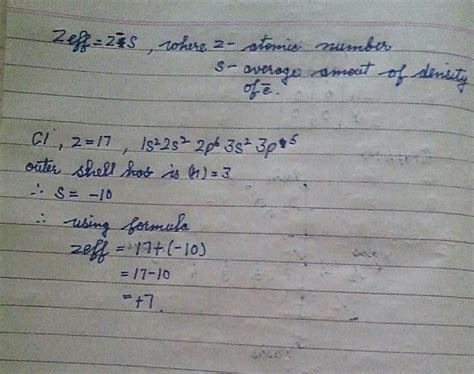 Zeff = Z±S, where Z - atomic number
S - average amout of density
of ē.
Cl, Z=17, 1s² 2s² 2p⁶ 3s² 3p⁵
outer shell has is (n) = 3
∴ S = -10
∴ using formula
Zeff = 17+(-10)
= 17-10
= +7